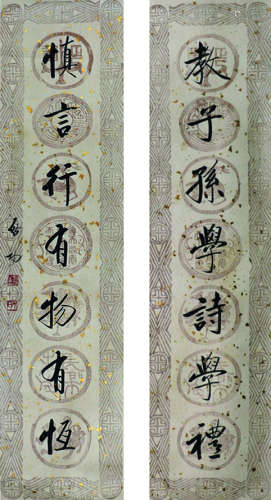 教子孫學詩學禮
慎言行有物有恆
啟功